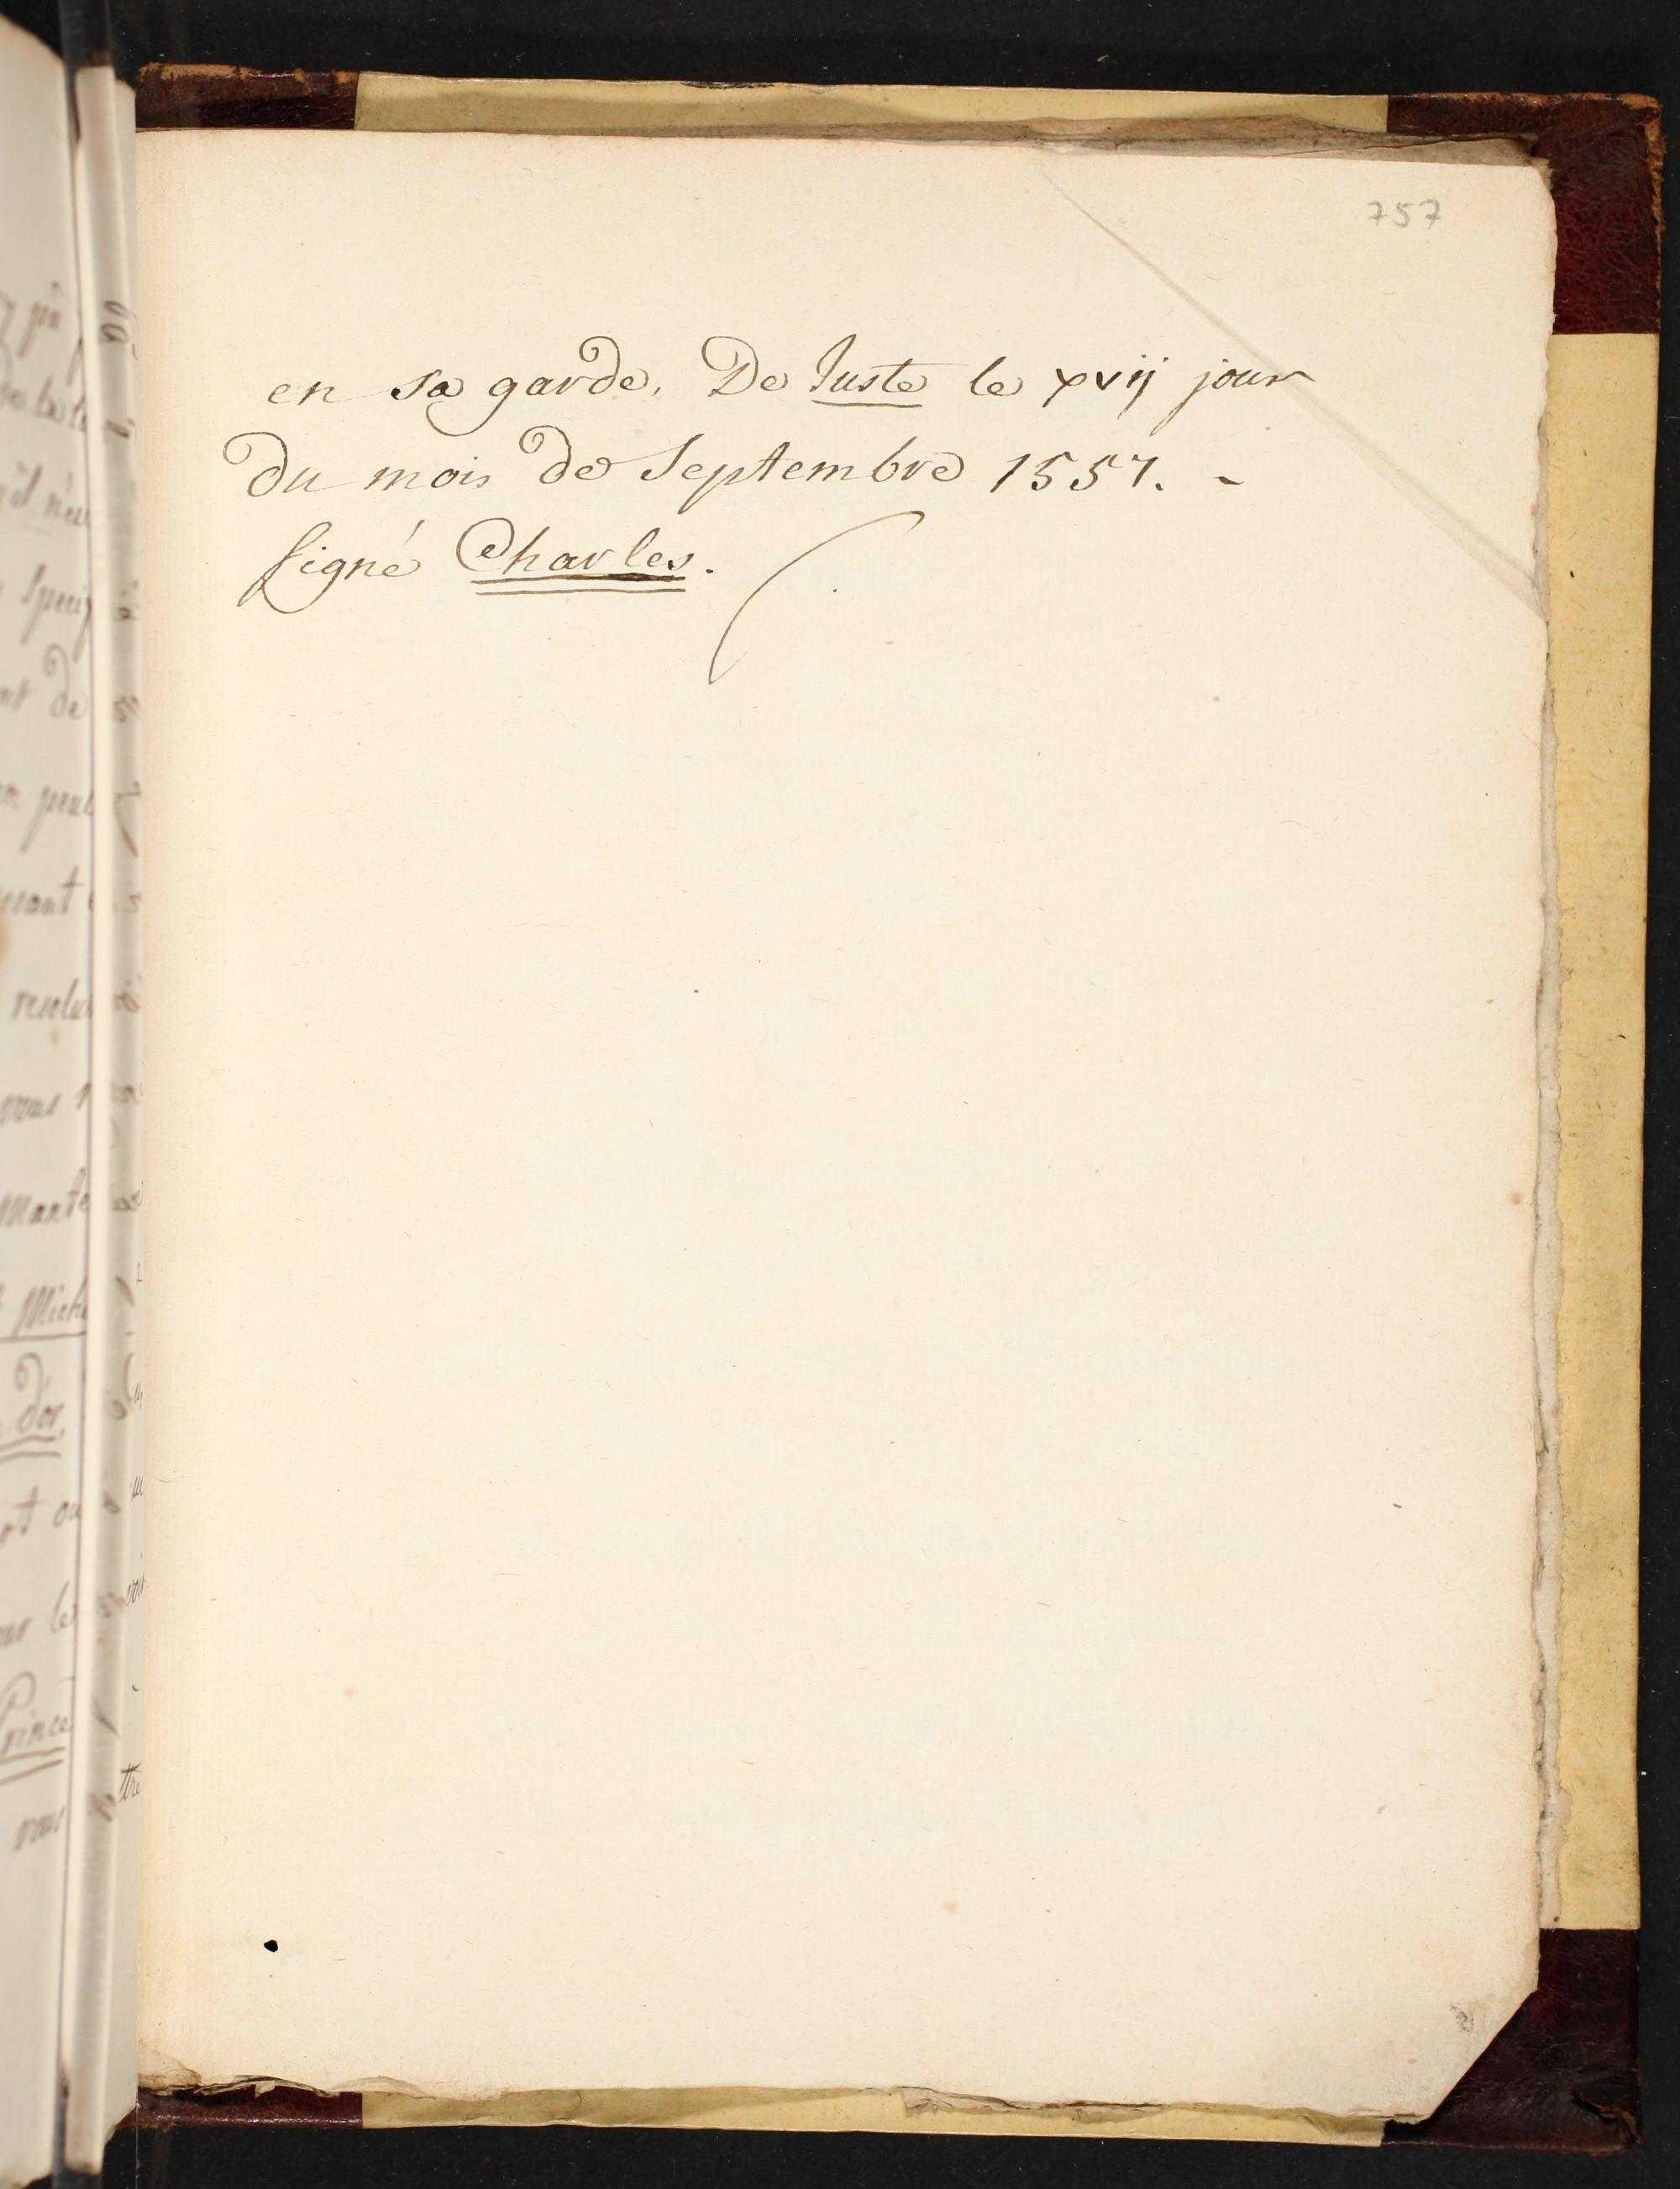 757
en sa garde. De Juste le xvij jour
du mois de Septembre 1557. -
signé Charles.